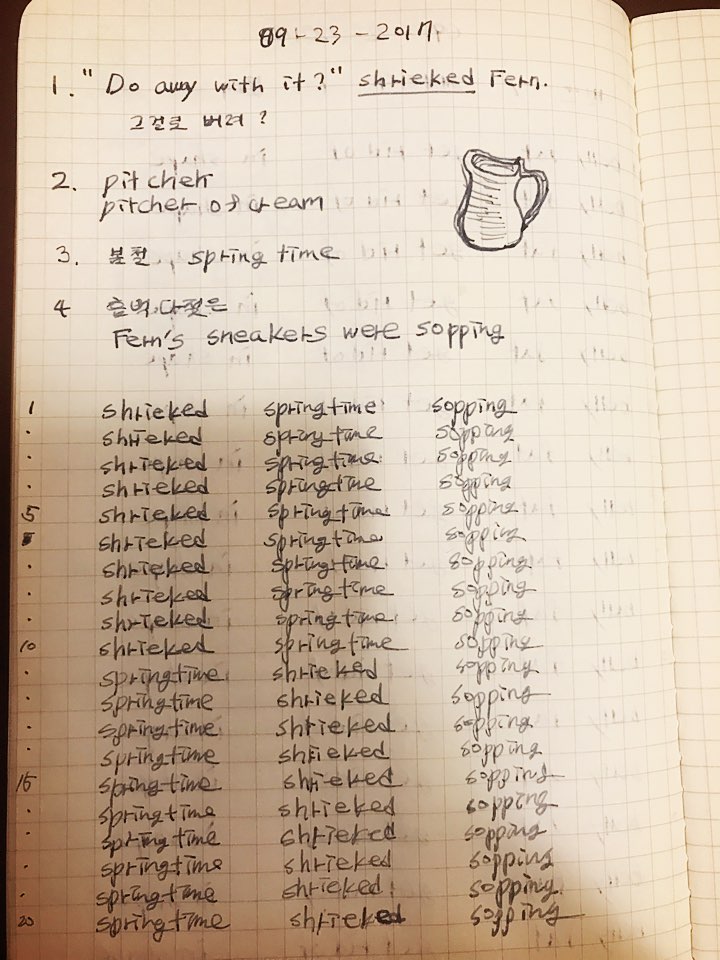 09-23-2017
1. "Do away with it?" shrieked Fern.
그걸로 버려?
2. pitcher
pitcher of cream
3. 봄철, spring time
4 흠벅 다젖은
Fern's sneakers were sopping
1 shrieked springtime sopping
· shrieked springtime sopping
· shrieked springtime sopping
· shrieked springtime sopping
5 shrieked springtime sopping
shrieked springtime sopping
· shrieked springtime sopping
· shrieked springtime sopping
· shrieked springtime sopping
10 shrieked springtime sopping
· springtime shrieked sopping
· springtime shrieked sopping
· springtime shrieked sopping
· springtime shrieked sopping
15 springtime shrieked sopping
· springtime shrieked sopping
· springtime shrieked sopping
· springtime shrieked sopping
· springtime shrieked sopping
20 springtime shrieked sopping